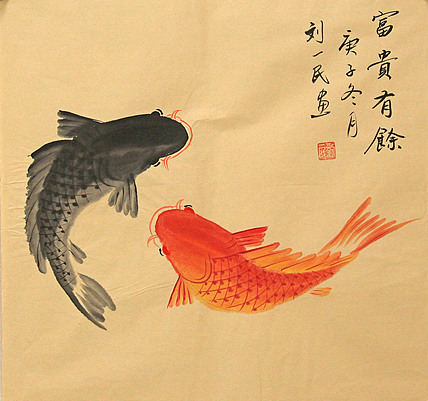 富貴有餘
庚子冬月
刘一民画